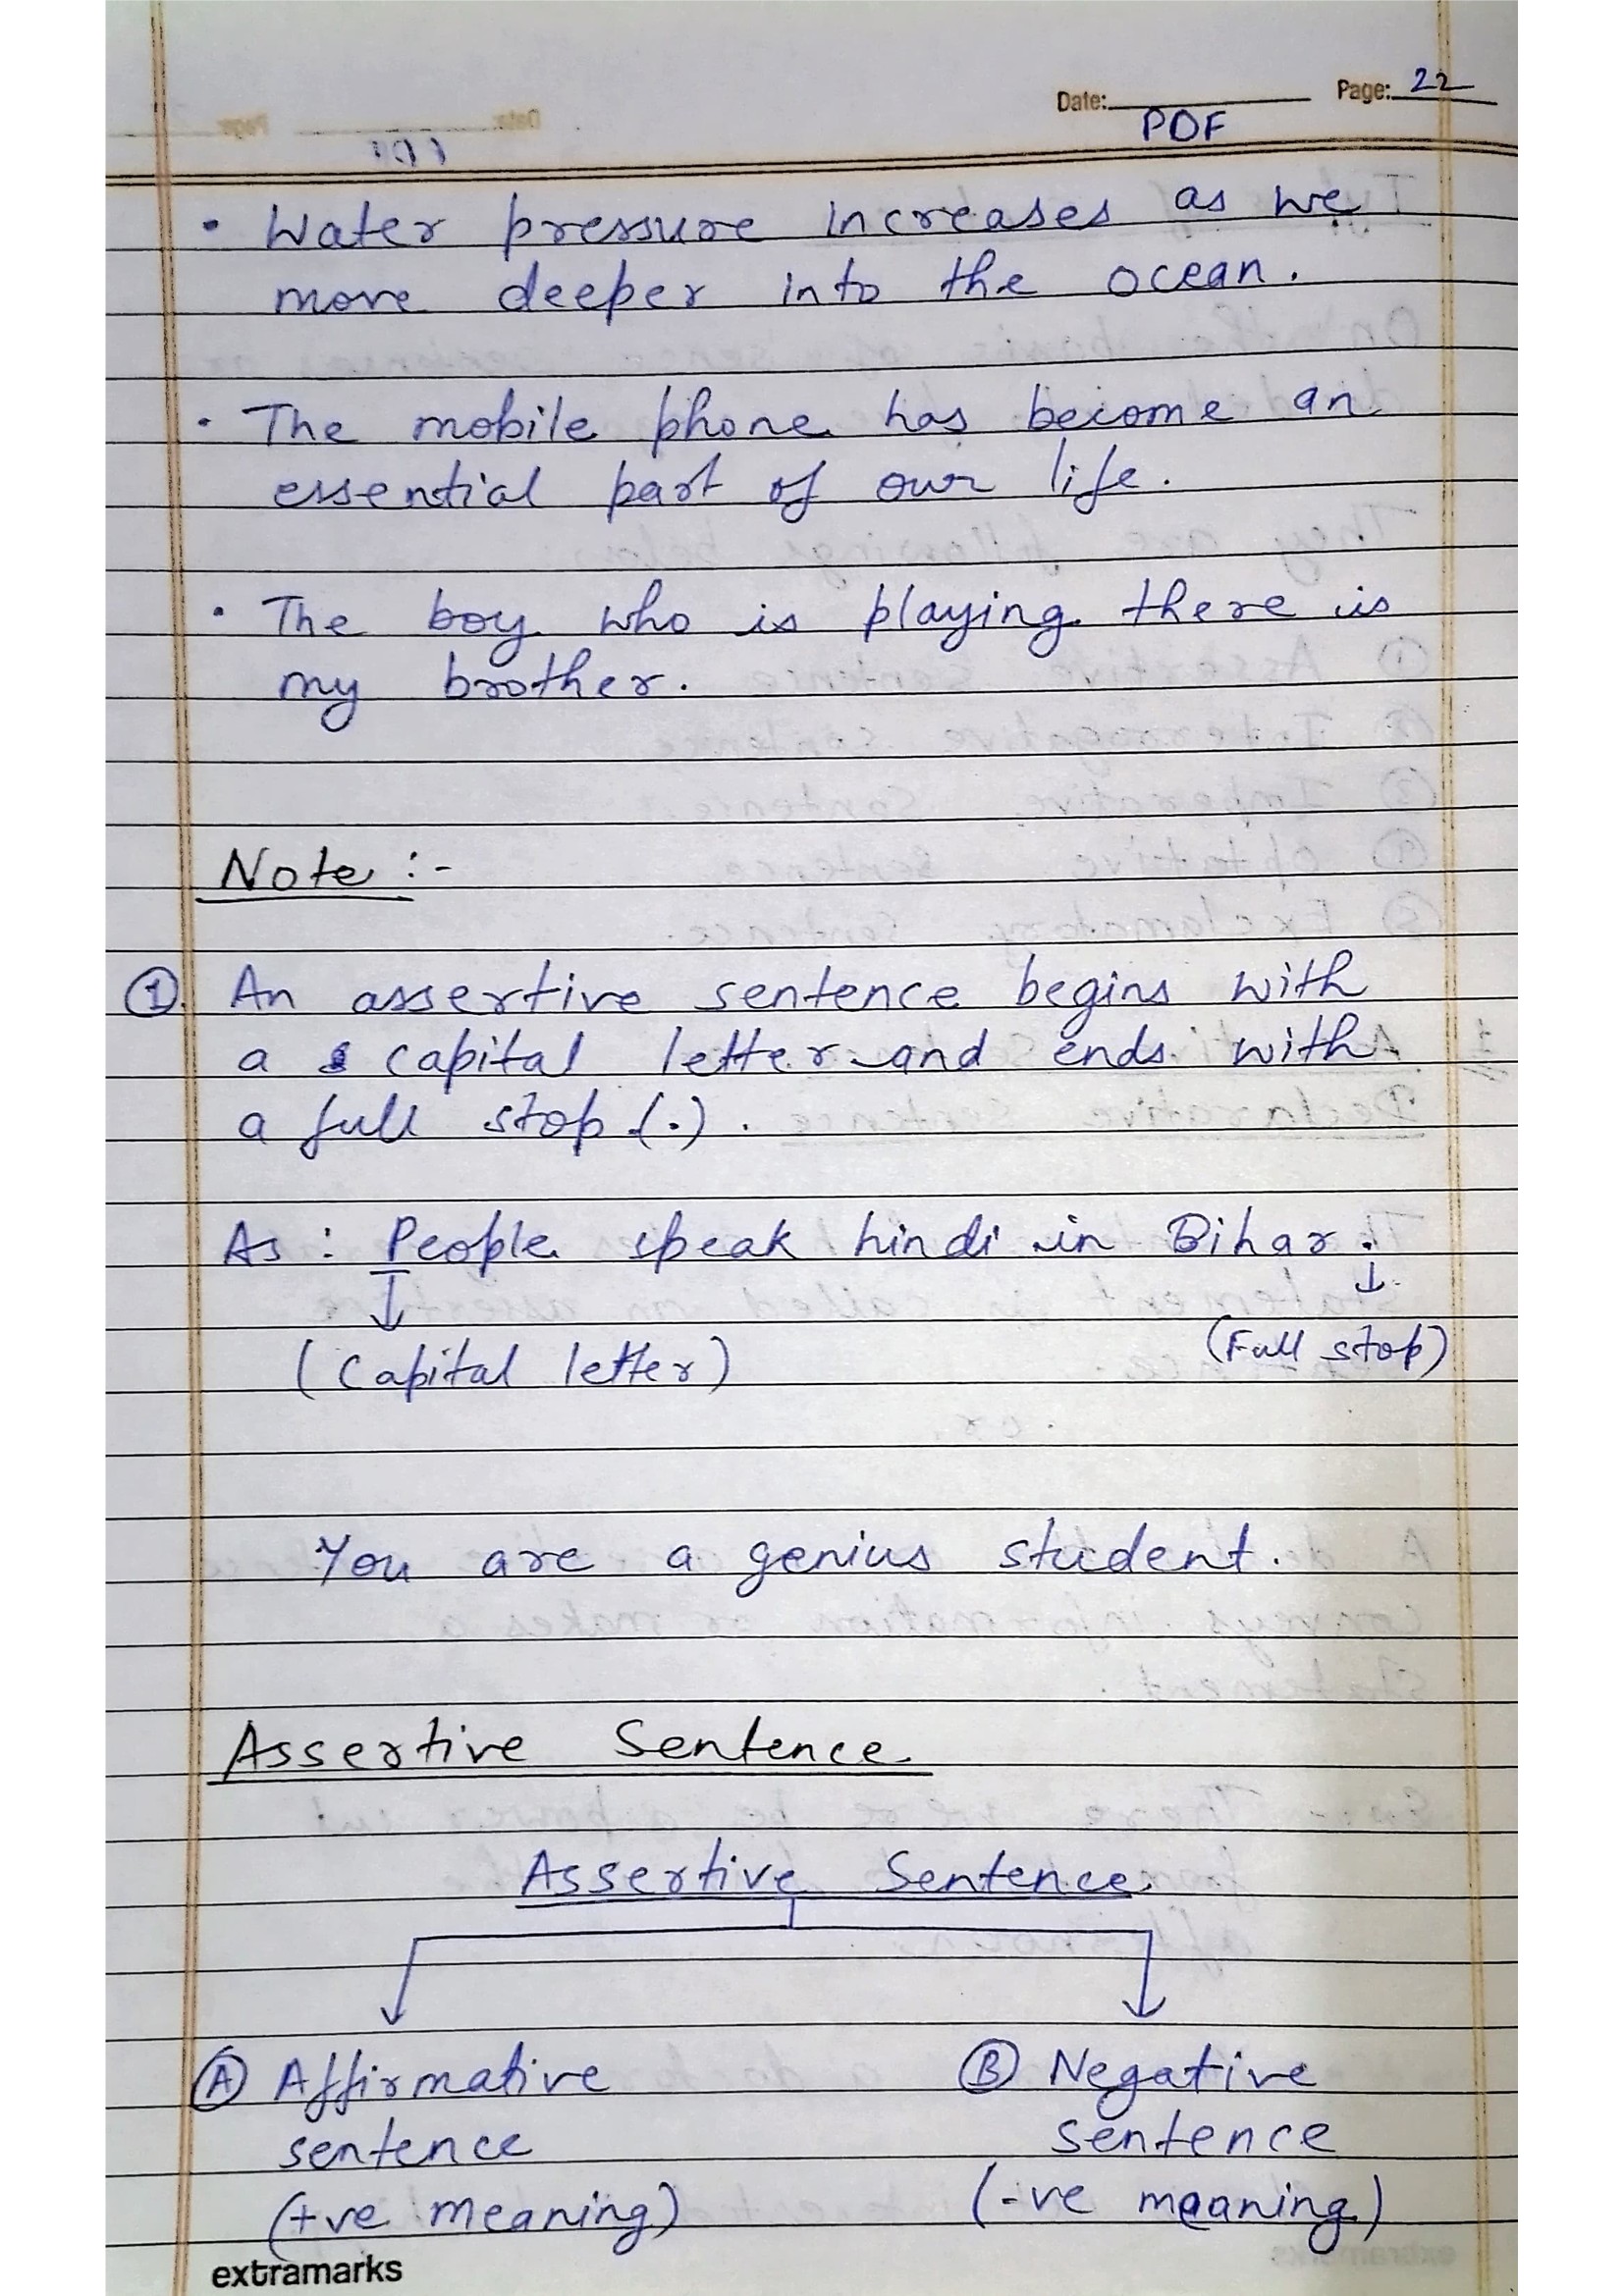 Date: Page: 22
PDF
• Water pressure increases as we
move deeper into the ocean.
• The mobile phone has become an
essential part of our life.
• The boy who is playing there is
my brother.
Note :-
① An assertive sentence begins with
a capital letter and ends with
a full stop (.) .
As : People speak hindi in Bihar.
↓ ↓
(Capital letter) (Full stop)
You are a genius student.
Assertive Sentence
Assertive Sentence
Ⓐ Affirmative Ⓑ Negative
sentence sentence
(+ve meaning) (-ve meaning)
extramarks